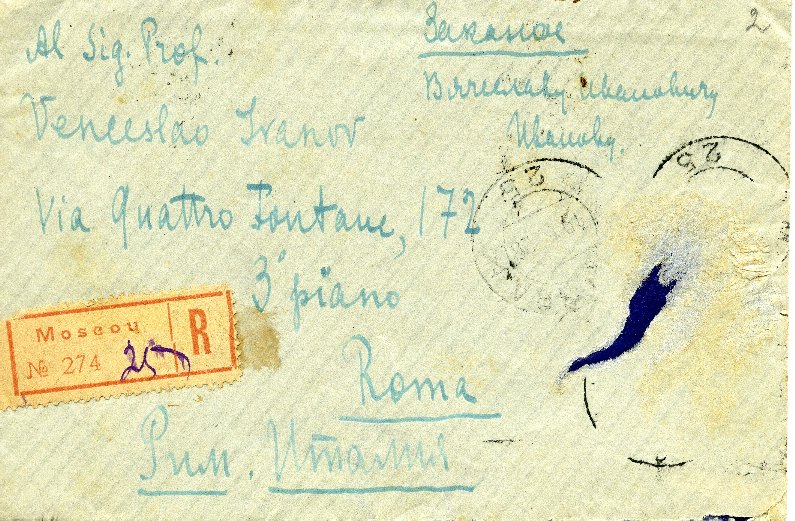 2
Заказное
Al Sig. Prof.
Вячеславу Ивановичу
Иванову.
Venceslao Ivanov
Via Quattro Fontane, 172
3° piano
Moscou
R
№ 274
25
Roma
Рим. Италия